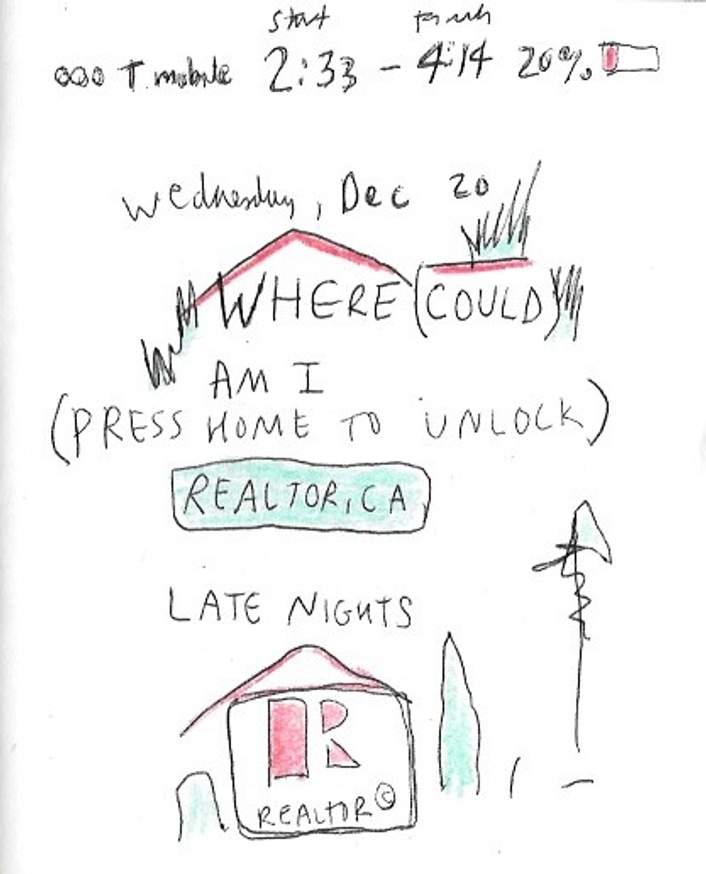 start finish
ooo T.mobile 2:33 - 4:14 20%
Wednesday, Dec 20
WHERE (COULD)
AM I
(PRESS HOME TO UNLOCK)
REALTOR.CA
LATE NIGHTS
R
REALTOR©